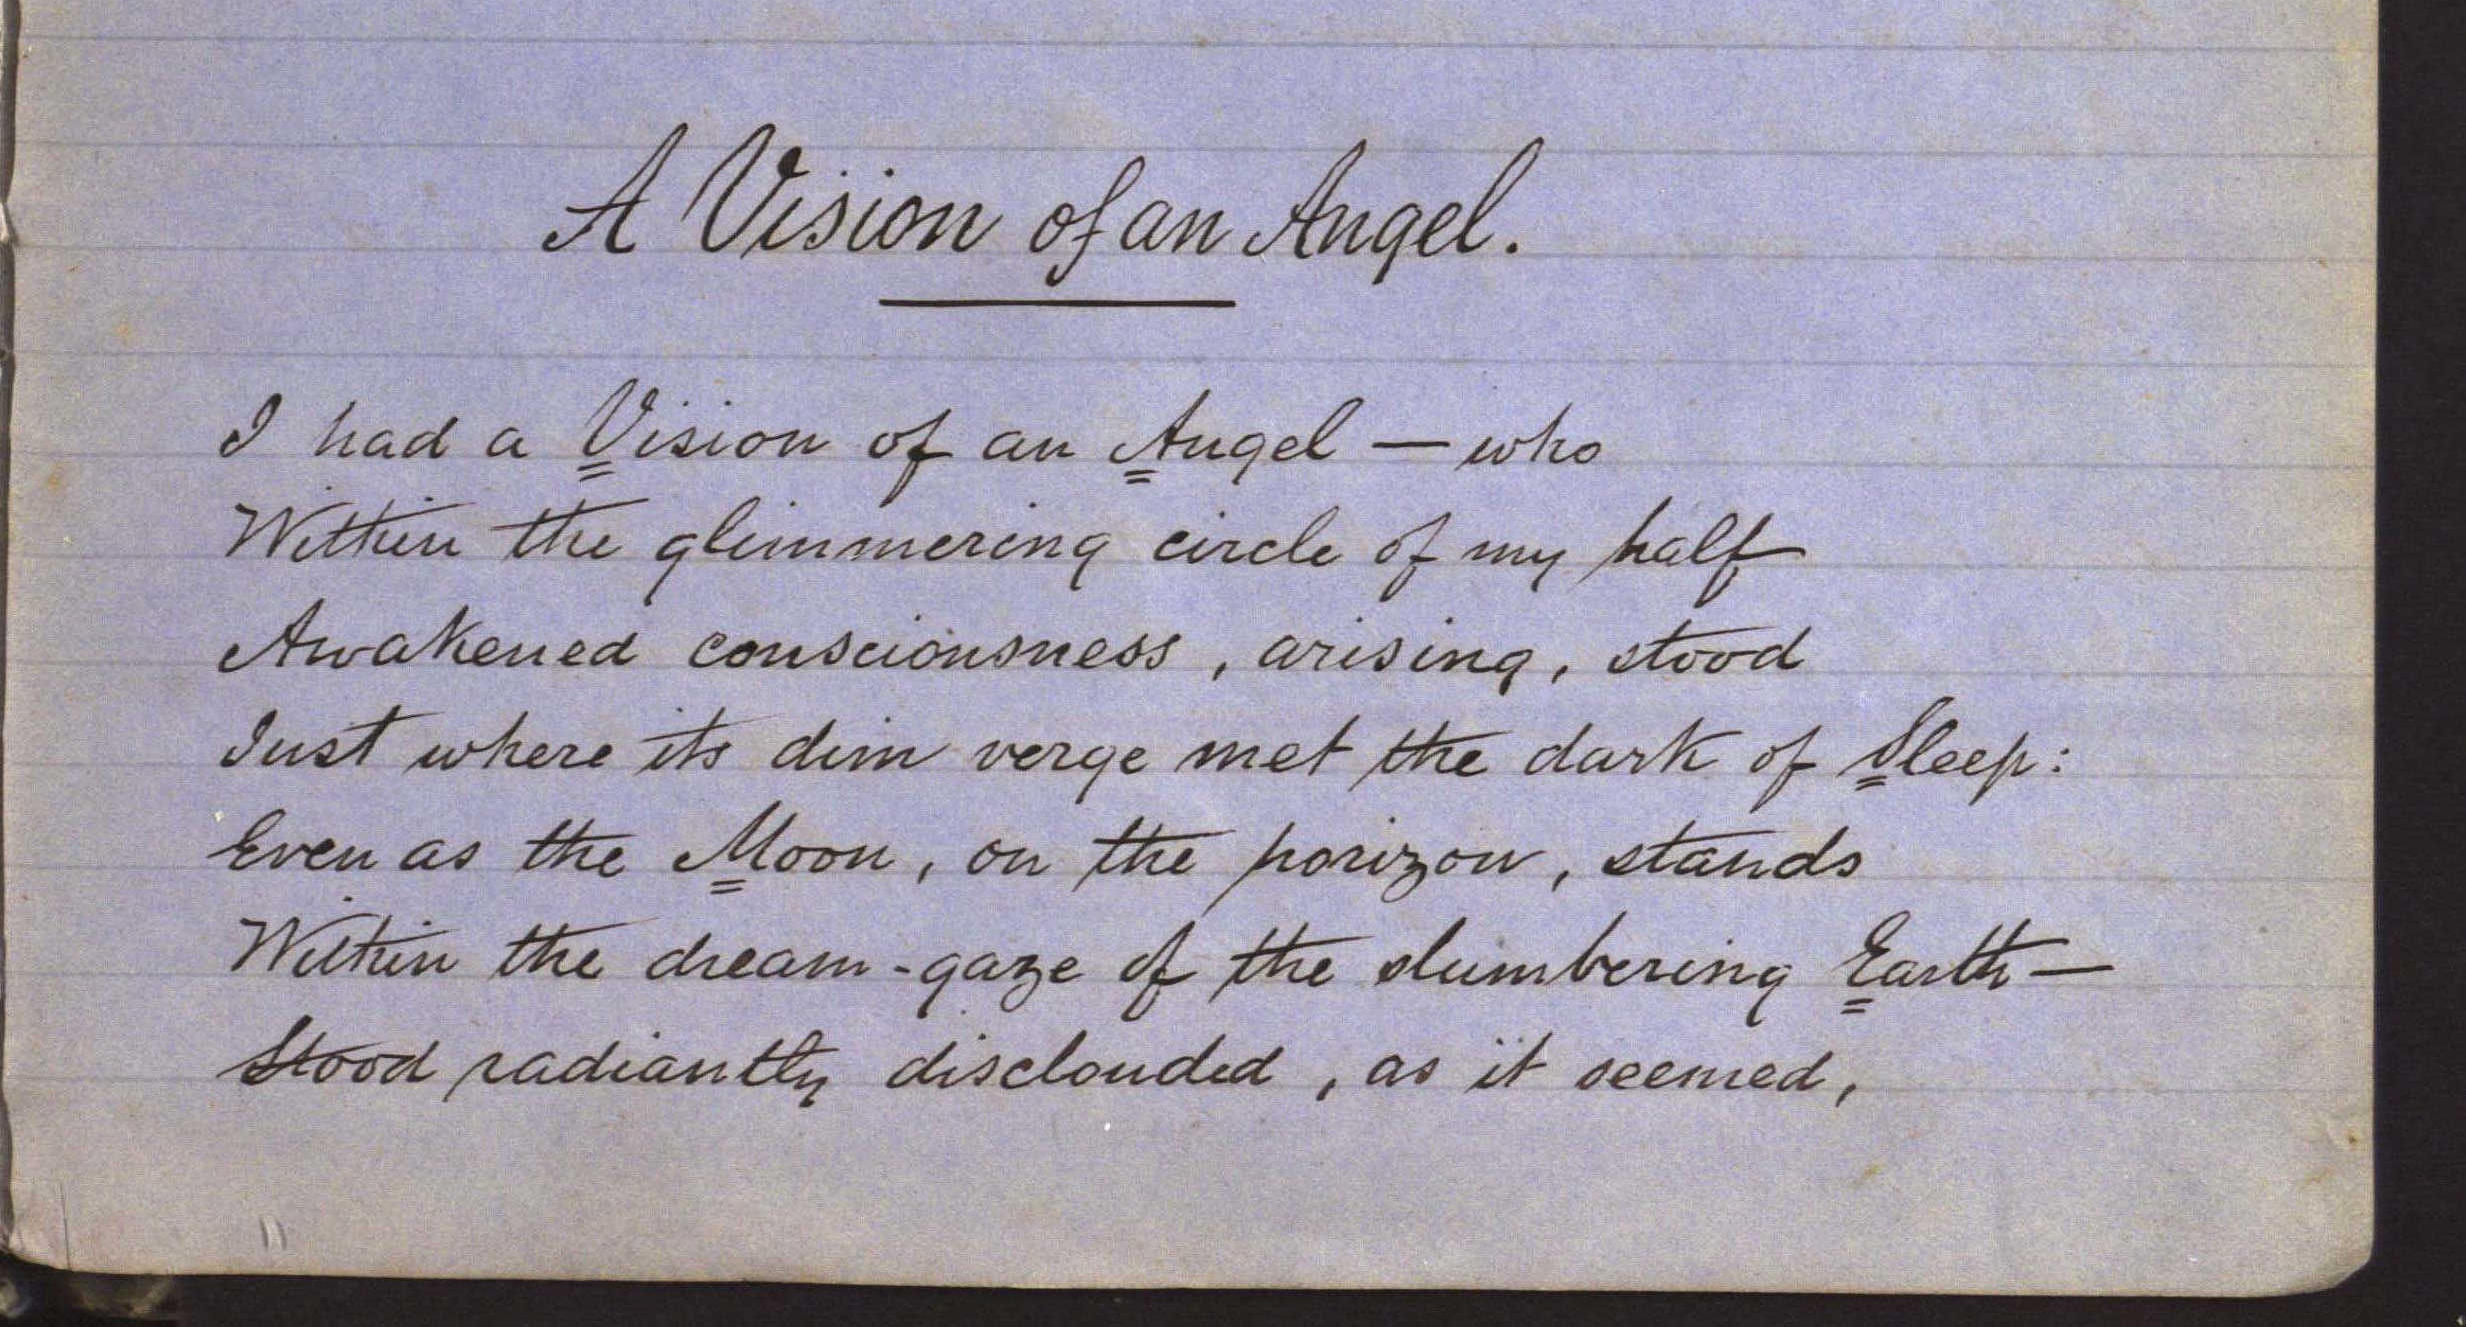 A Vision of an Angel.
I had a Vision of an Angel — who
Within the glimmering circle of my half
Awakened consciousness, arising, stood
Just where its dim verge met the dark of Sleep:
Even as the Moon, on the horizon, stands
Within the dream-gaze of the slumbering Earth —
Stood radiantly disclouded, as it seemed,